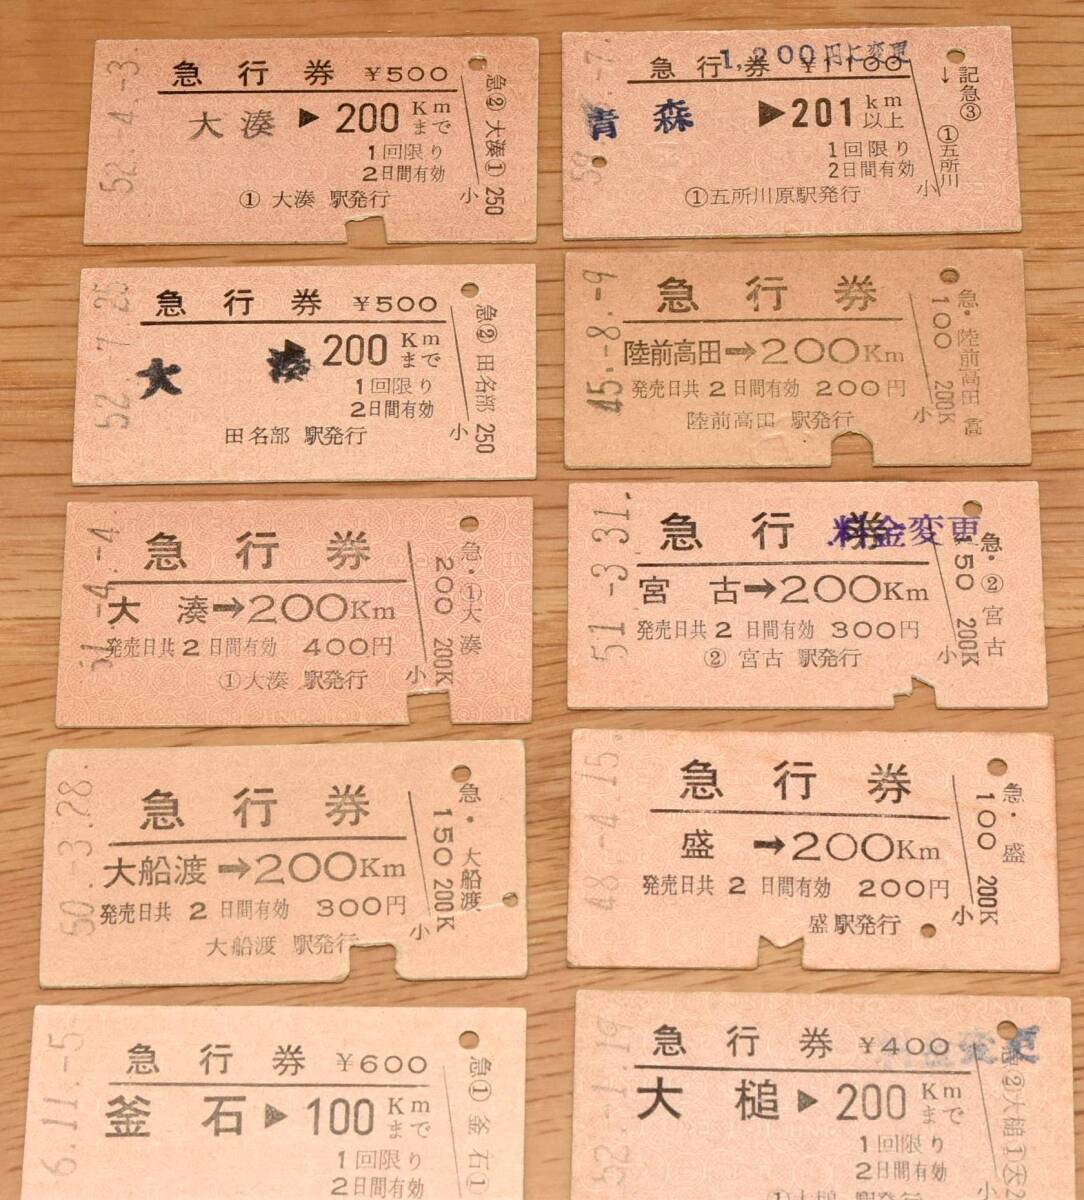 52.-4.-3.
急行券 ¥500
大湊▶200 Kmまで
1回限り
2日間有効
① 大湊 駅発行
急② 大湊① 250
小
-7.
1,200円に変更
急行券 ¥1100
青森 ▶201 km以上
1回限り
2日間有効
①五所川原駅発行
↓記急③ ①五所川
小
52.-7.25
急行券 ¥500
大湊▶200 Kmまで
1回限り
2日間有効
田名部 駅発行
急② 田名部 250
小
45.-8.-9
急行券
陸前高田→200Km
発売日共2日間有効 200円
陸前高田 駅発行
急・陸前高田
100 200K
小
51.-4.-4.
急行券
大湊→200Km
発売日共2日間有効 400円
①大湊 駅発行
急・①大湊
200 200K
小
51.-3.31.
料金変更
急行券
宮古→200Km
発売日共2日間有効 300円
② 宮古 駅発行
急・②宮古
150 200K
小
50.-3.28.
急行券
大船渡→200Km
発売日共2日間有効 300円
大船渡 駅発行
急・大船渡
150 200K
小
48.-4.15.
急行券
盛→200Km
発売日共2日間有効 200円
盛駅発行
急・盛
100 200K
小
6.11.-5
急行券 ¥600
釜石▶100 Kmまで
1回限り
2日間有効
急① 釜石①
52.-1.19
変更
急行券 ¥400
大槌▶200 Kmまで
1回限り
2日間有効
①大槌 駅発行
急②大槌①
小